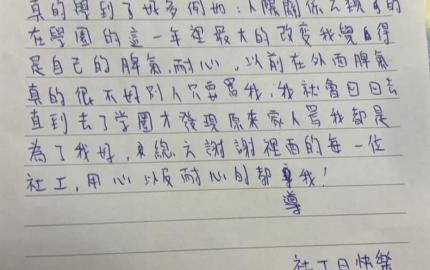 真的學到了好多例如：人際關係六親　的
在學園的這一年裡最大的改变我覺得
是自己的脾氣、耐心，以前在外面脾氣
真的很不好別人只要罵我，我就會回回去
直到去了学園才發現原來家人罵我都是
為了我好，來總之謝謝裡面的每一位
社工，用心以及耐心的都導我！
社工日快樂